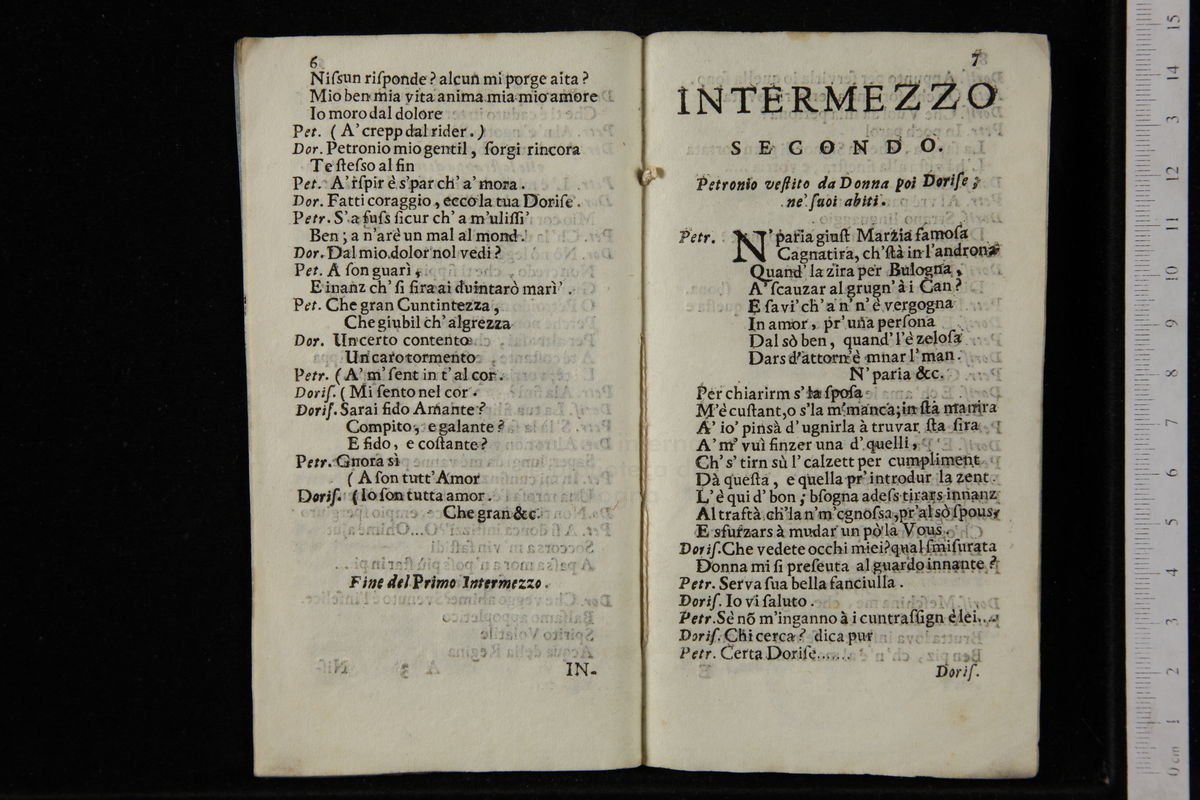 6
Niſsun riſponde? alcun mi porge aita?
Mio ben mia vita anima mia mio amore
Io moro dal dolore
Pet. ( A' crepp dal rider.)
Dor. Petronio mio gentil, ſorgi rincora
Te ſteſso al fin
Pet. A' rſpir è s'par ch' a' mora.
Dor. Fatti coraggio, ecco la tua Doriſe.
Petr. S' a fuſs ſicur ch' a m'uliſſi'
Ben; a n'arè un mal al mond.
Dor. Dal mio dolor nol vedi?
Pet. A ſon guarì,
E inanz ch' ſi ſira ai duintarò marì'.
Pet. Che gran Cuntintezza,
Che giubil ch' algrezza
Dor. Un certo contento
Un caro tormento
Petr. ( A' m' ſent in t' al cor.
Doriſ. ( Mi ſento nel cor.
Doriſ. Sarai fido Amante?
Compito, e galante?
E fido, e coſtante?
Petr. Gnora sì
( A ſon tutt' Amor
Doriſ. ( Io ſon tutta amor.
Che gran &c.
Fine del Primo Intermezzo.
IN-
7
INTERMEZZO
SECONDO.
Petronio veſtito da Donna poi Doriſe,
ne' ſuoi abiti.
Petr. N' paria giuſt Marzia famoſa
Cagnatira, ch'ſtà in l'androna
Quand' la zira per Bulogna,
A' ſcauzar al grugn' à i Can?
E ſavi' ch' a n' n' è vergogna
In amor, pr' una perſona
Dal sò ben, quand' l'è zeloſa
Dars d'attorn è mnar l' man.
N' paria &c.
Per chiarirm s' la ſpoſa
M'è cuſtant, o s'la m' manca; in ſtà manira
A' io' pinsà d' ugnirla à truvar ſta ſira
A' m' vuì finzer una d' quelli,
Ch' s' tirn sù l' calzett per cumpliment
Dà queſta, e quella pr' introdur la zent.
L' è qui d' bon; bſogna adeſs tirars innanz
Al traſtà ch'la n'm'cgnoſsa, pr'al sò ſpous,
E sfurzars à mudar un pò la Vous.
Doriſ. Che vedete occhi miei? qual ſmiſurata
Donna mi ſi preſeuta al guardo innante?
Petr. Serva ſua bella fanciulla.
Doriſ. Io vi ſaluto.
Petr. Sè nō m'inganno à i cuntraſſign è lei....
Doriſ. Chi cerca? dica pur
Petr. Certa Doriſe.......
Doriſ.